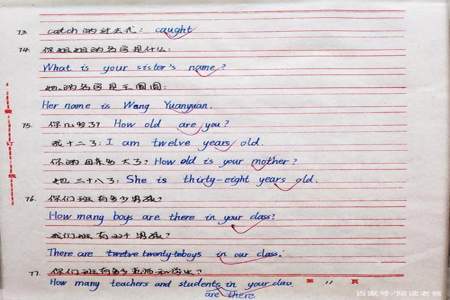 73. catch的过去式: caught
74. 你姐姐的名字是什么:
What is your sister's name?
她的名字是王圆圆:
Her name is Wang Yuanyuan.
75. 你几岁了? How old are you?
我十二了: I am twelve years old.
你的母亲多大了? How old is your mother?
她三十八了: She is thirty-eight years old.
76. 你们班有多少男孩?
How many boys are there in your class?
我们班有20个男孩?
There are twelve twenty boys in our class.
77. 你们班有多少老师和学生?
How many teachers and students in your class
are there.
第 11 页